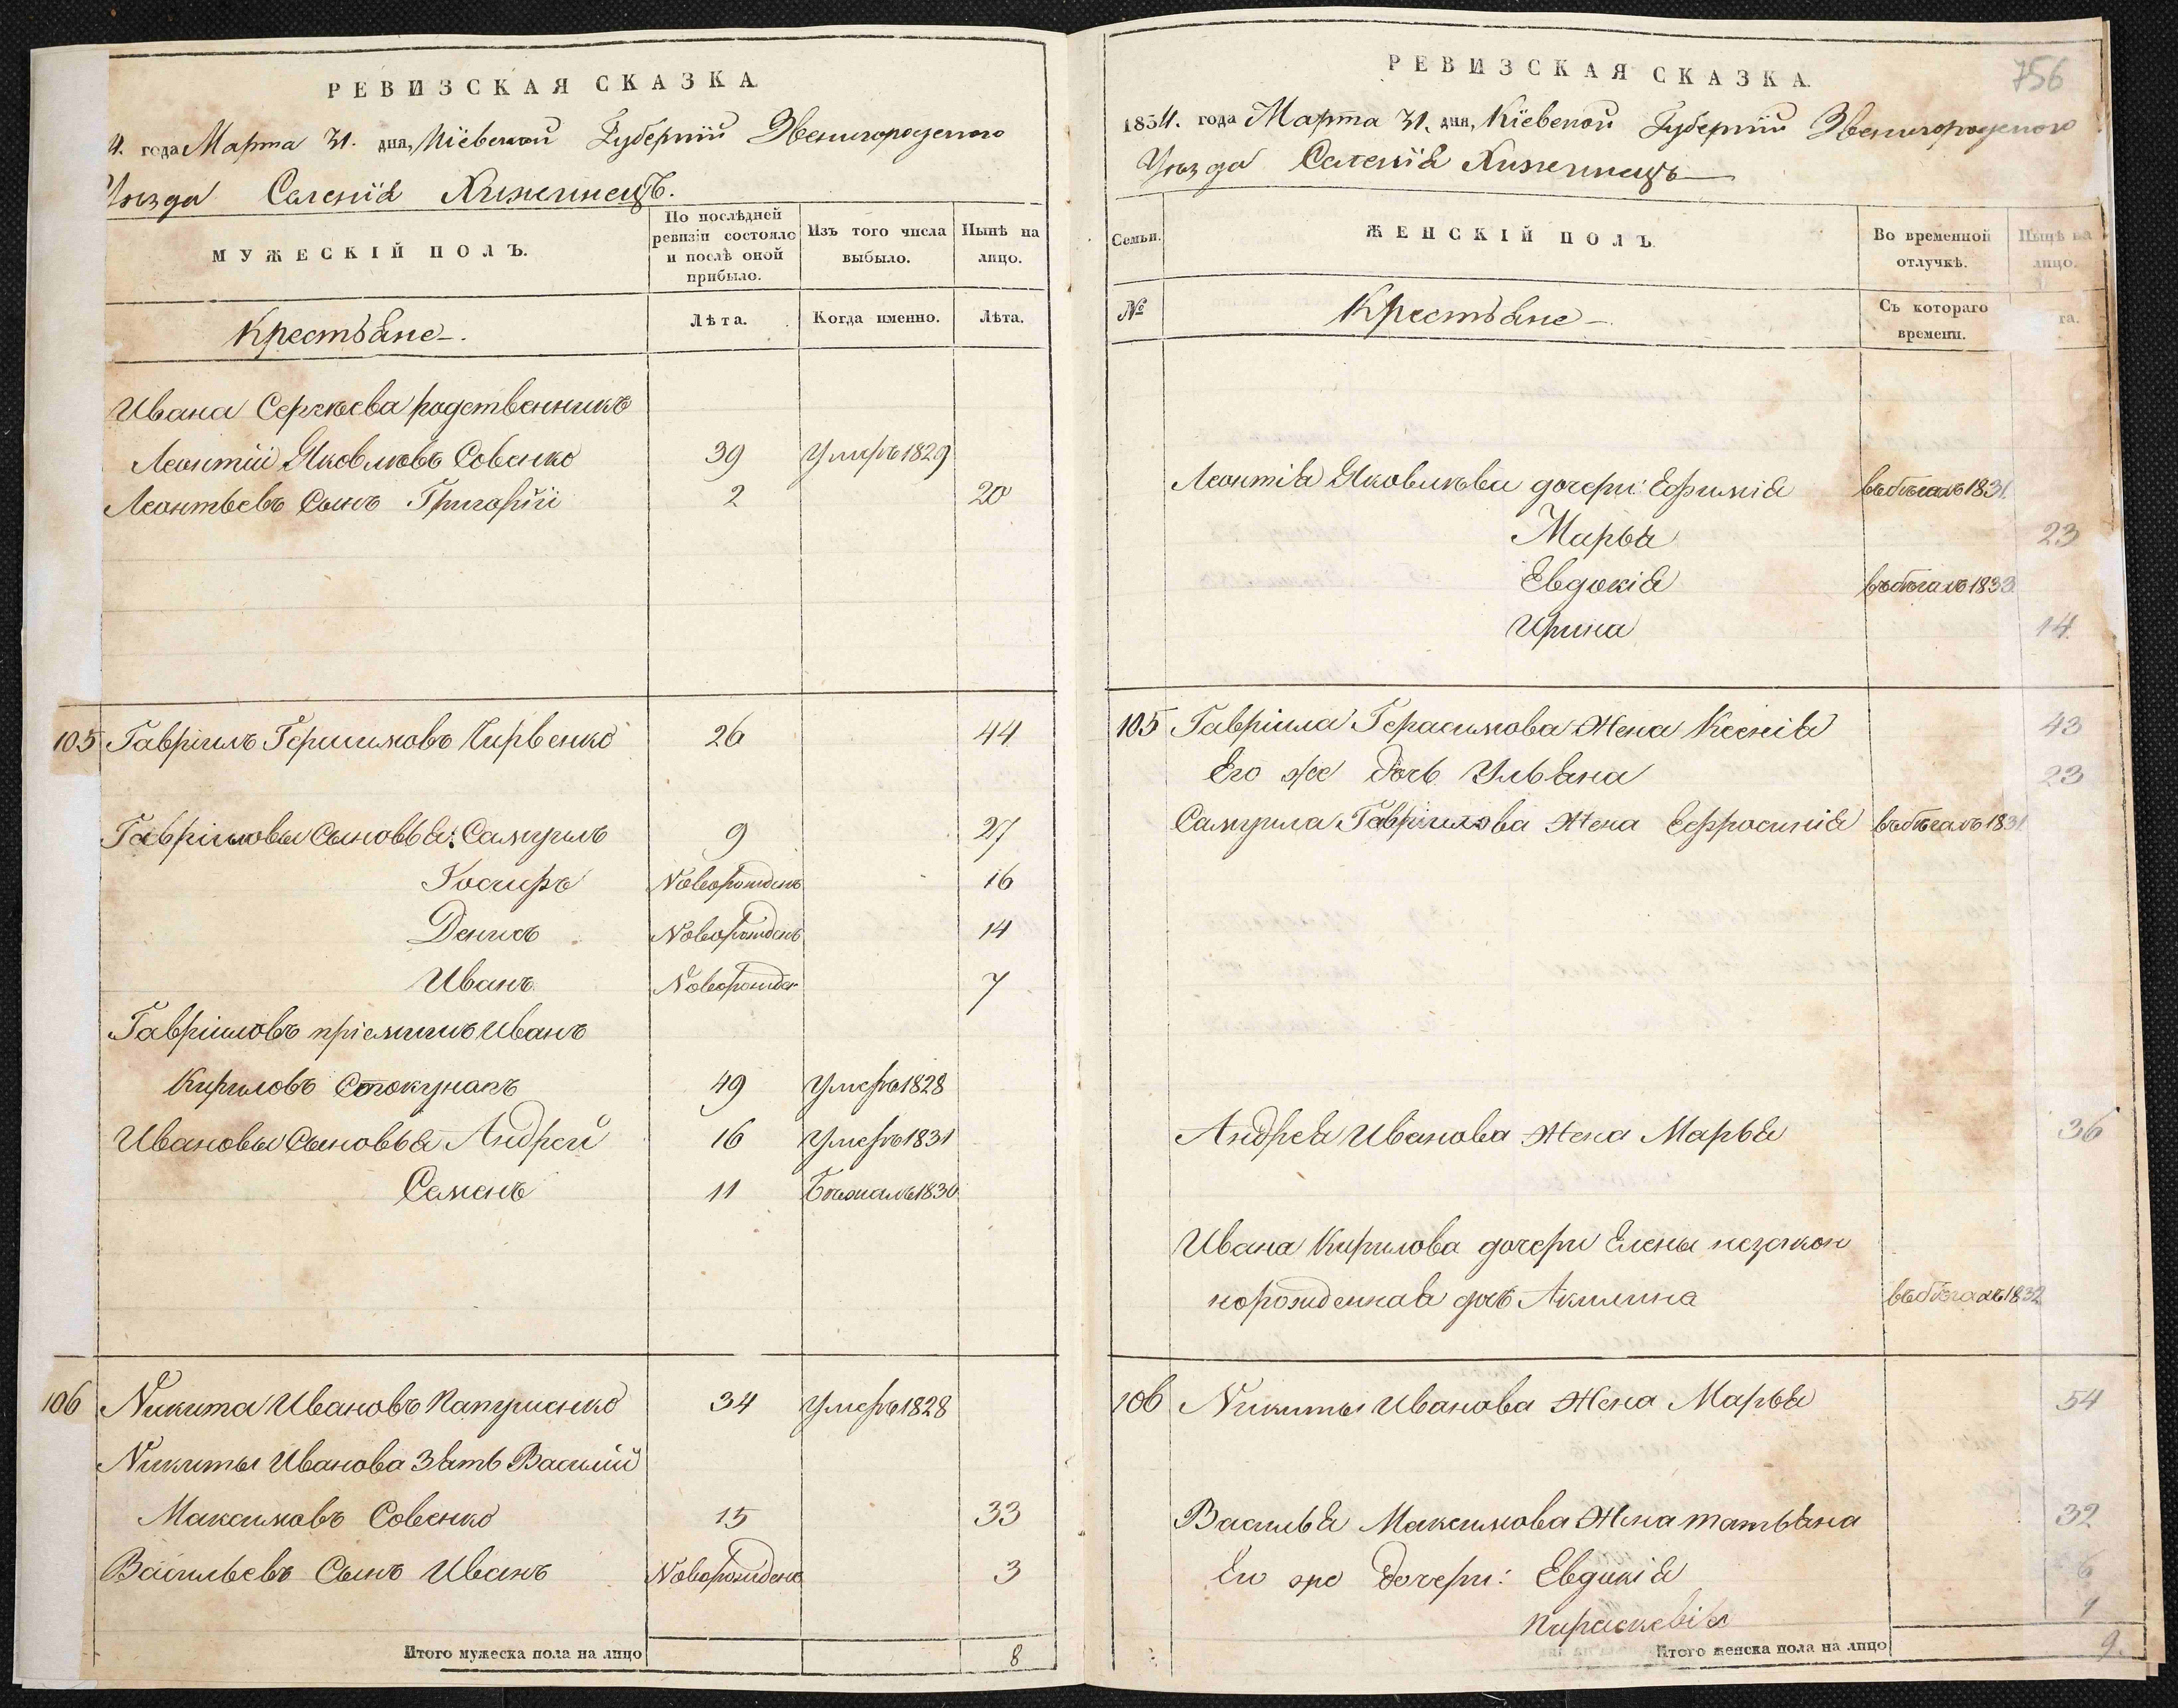 РЕВИЗСКАЯ СКАЗКА
4. года Марта 31. дня, Кіевской Губерніи Звенигородского
Уѣзда Селенія Хижинецъ.
МУЖЕСКІЙ ПОЛЪ.
По послѣдней ревизіи состояло и послѣ оной прибыло.
Изъ того числа выбыло.
Нынѣ на лицо.
Крестьяне
Лѣта.
Когда именно.
Лѣта.
Ивана Сергѣева родственникъ
Леонтій Яковлевъ Совенко 39 Умеръ 1829
Леонтьевъ Сынъ Григорій 2 20
105 Гавріилъ Герасимовъ Чирвенко 26 44
Гавріиловы Сыновья: Самуилъ 9 27
Іосифъ Новорожденъ 16
Денисъ Новорожденъ 14
Иванъ Новорожден 7
Гавріиловъ пріемишъ Иванъ
Кириловъ Стокунакъ 49 Умеръ 1828
Ивановы Сыновья Андрей 16 Умеръ 1831
Семенъ 11 Бежалъ 1830
106 Никита Ивановъ Патриенко 34 Умеръ 1828
Никиты Иванова Зять Василій
Максимовъ Совенко 15 33
Васильевъ Сынъ Иванъ Новорожденъ 3
Итого мужеска пола на лицо 8
РЕВИЗСКАЯ СКАЗКА.
756
1834. года Марта 31. дня, Кіевской Губерніи Звенигородского
Уѣзда Селенія Хижинецъ
Семьи.
ЖЕНСКІЙ ПОЛЪ.
Во временной отлучкѣ.
Нынѣ на лицо.
№
Крестьяне
Съ котораго времени.
та.
Леонтія Яковлева дочери: Ефимія въ бѣгахъ 1831.
Марья 23
Евдокія въ бѣгахъ 1833.
Ирина 14.
105 Гавріила Герасимова Жена Ксенія 43
Его же Дочь Ульяна 23
Самуила Гавріилова Жена Ефросинія въ бѣгахъ 1831
Андрея Иванова Жена Марья 36
Ивана Кирилова дочери Елены незакон
норожденная дочь Акилина въ бѣгахъ 1832
106 Никиты Иванова Жена Марья 54
Василья Максимова Жена татьяна 32
Его же Дочери: Евдокія 6
параскевія 1
Итого женска пола на лицо 9.